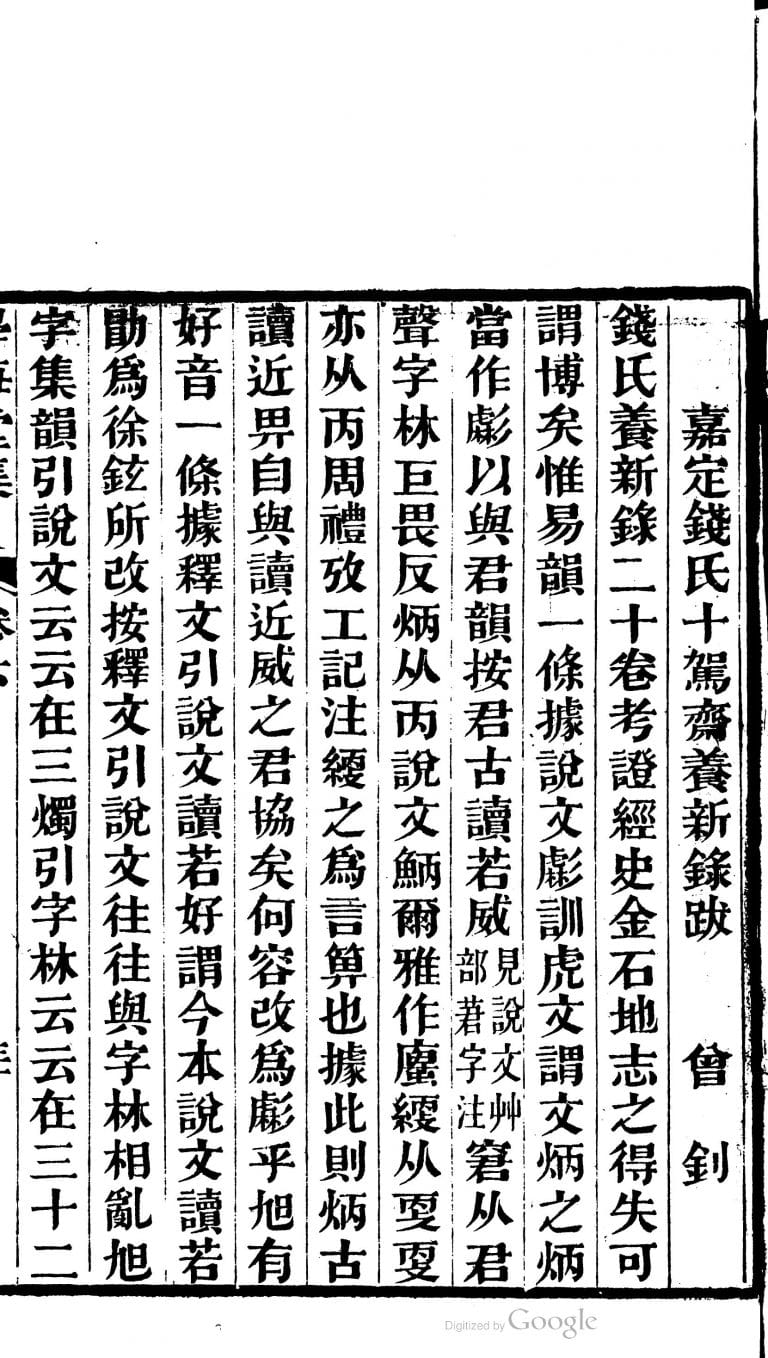 嘉定錢氏十駕齋養新錄跋　曾釗
錢氏養新錄二十卷考證經史金石地志之得失可
謂博矣惟易韻一條據說文彪訓虎文謂文炳之炳
當作彪以與君韻按君古讀若威見說文艸部莙字注窘从君
聲字林巨畏反炳从丙說文鮩爾雅作廬緶从㪅㪅
亦从丙周禮攷工記注緶之爲言箅也據此則炳古
讀近畀自與讀近威之君協矣何容改爲彪乎旭有
好音一條據釋文引說文讀若好謂今本說文讀若
勖爲徐鉉所改按釋文引說文往往與字林相亂旭
字集韻引說文云云在三燭引字林云云在三十二
Digitized by Google